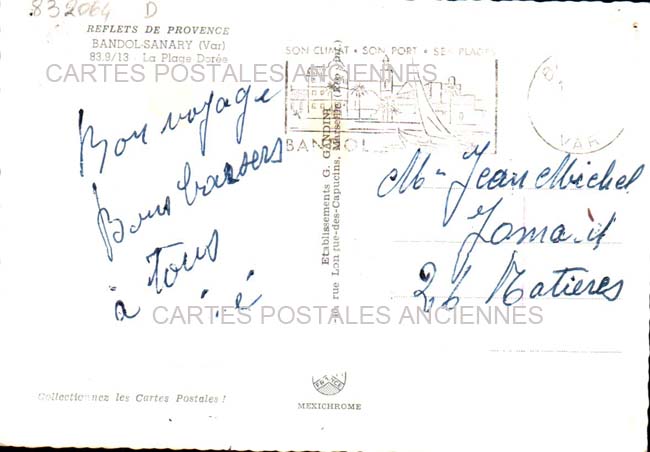 832064 D
REFLETS DE PROVENCE
BANDOL-SANARY (Var)
83.9/13 - La Plage Dorée
SON CLIMAT • SON PORT • SES PLAGES
BANDOL
VAR
CARTES POSTALES ANCIENNES
Bon voyage
Bons baisers
à Tous
Etablissements G. GANDINI
rue Longue-des-Capucins, Marseille
Mr Jean Michel
26
CARTES POSTALES ANCIENNES
Collectionnez les Cartes Postales !
FRANCE
MEXICHROME